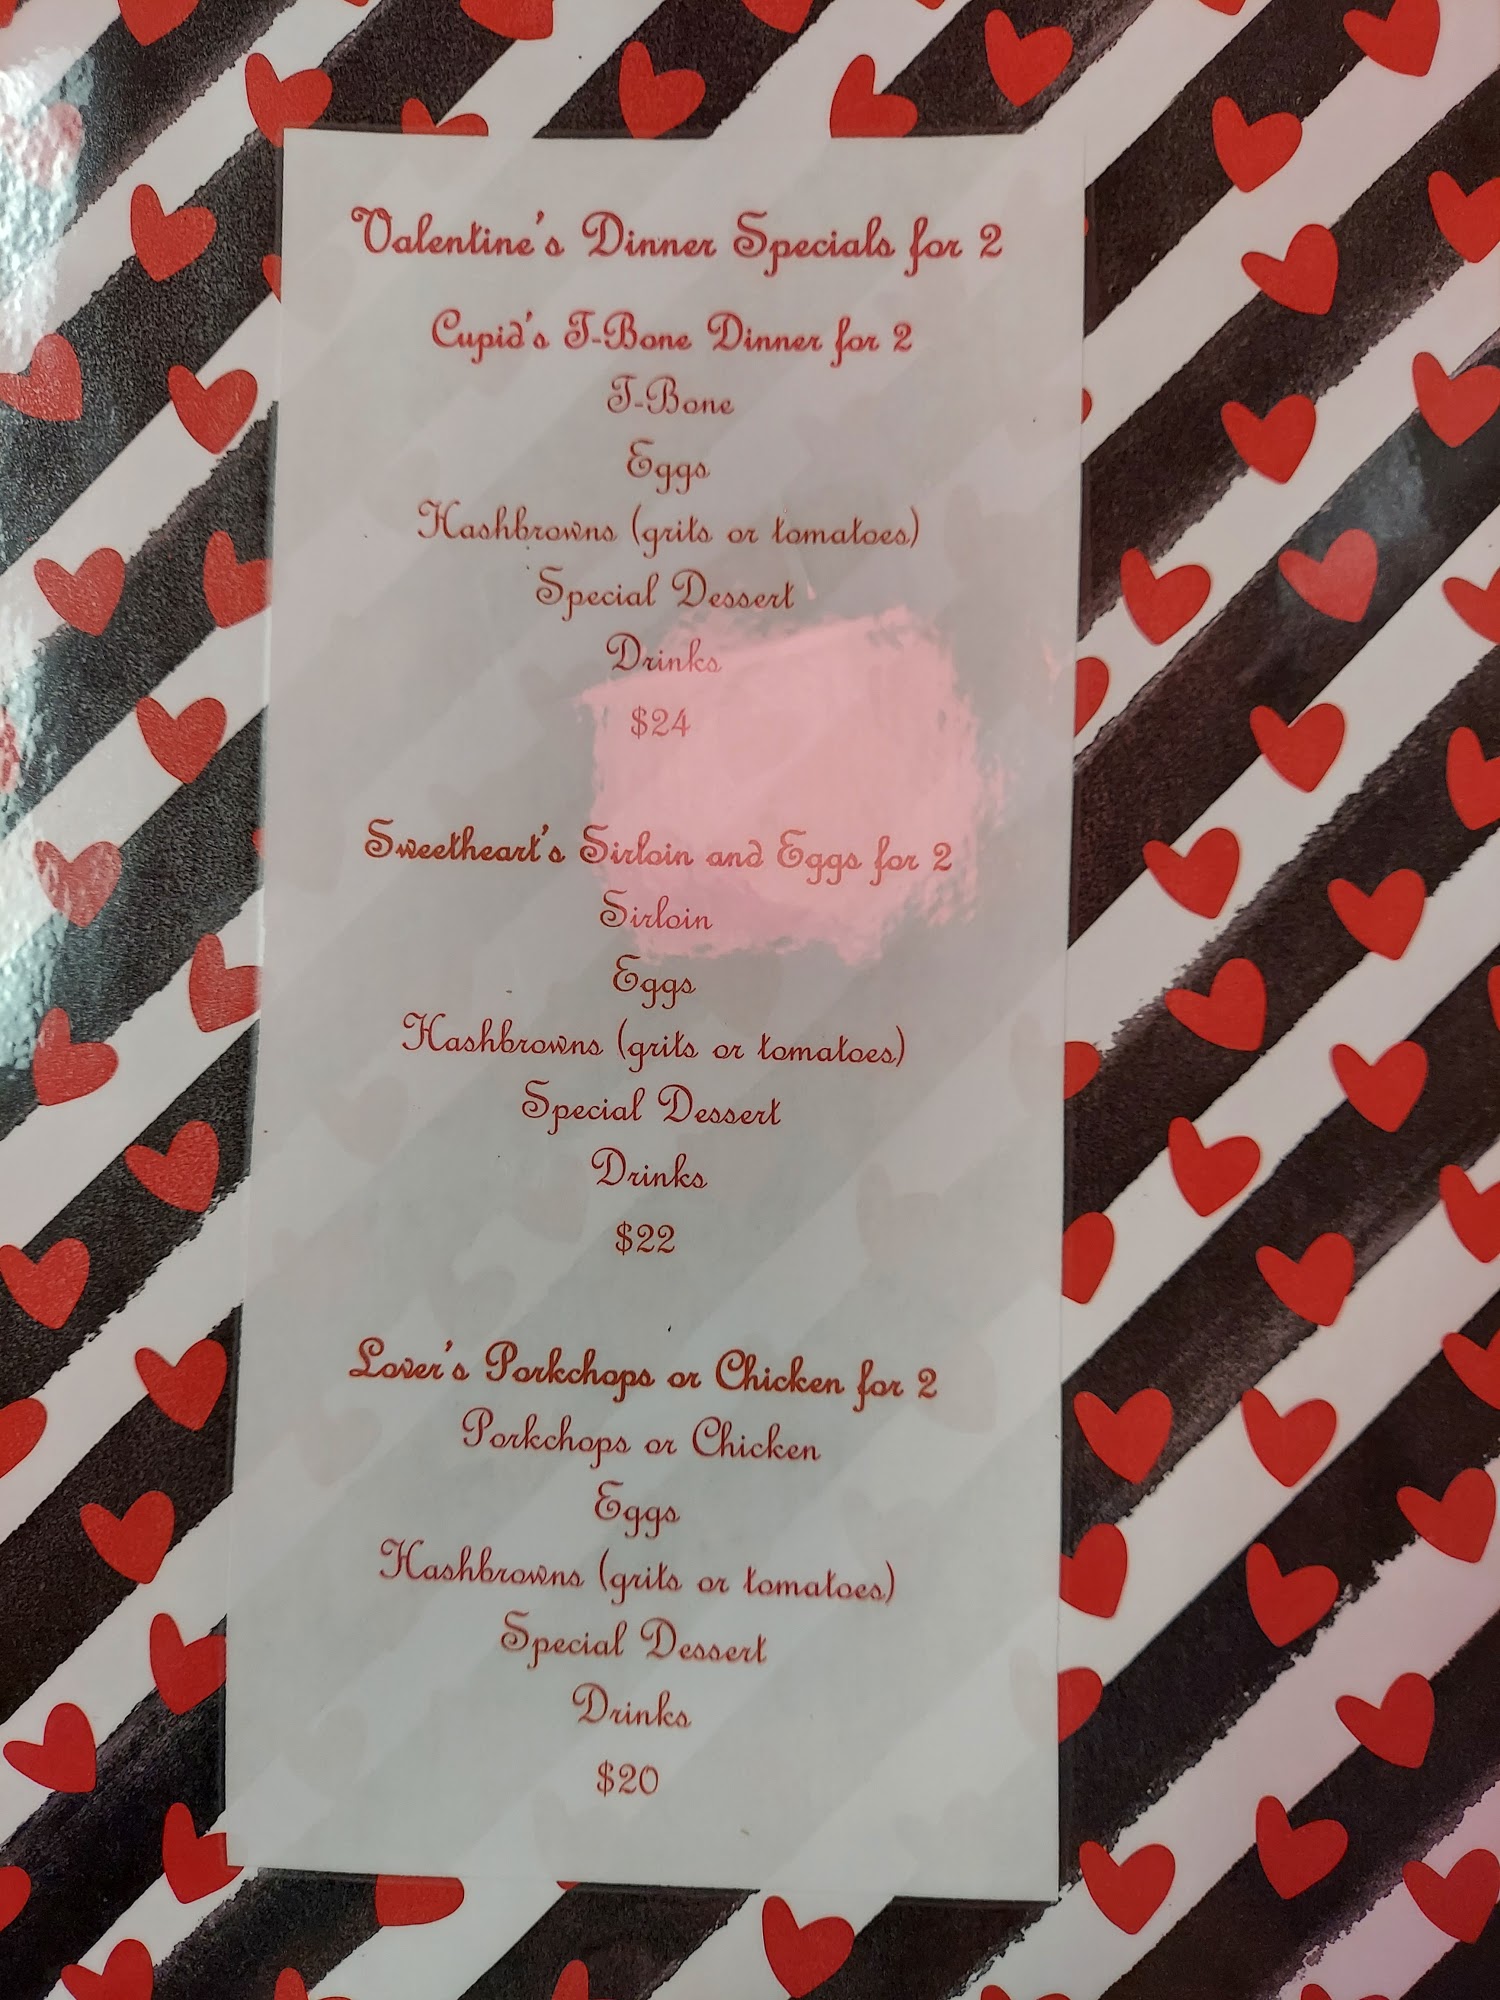 Valentine's Dinner Specials for 2
Cupid's T-Bone Dinner for 2
T-Bone
Eggs
Hashbrowns (grits or tomatoes)
Special Dessert
Drinks
$24
Sweetheart's Sirloin and Eggs for 2
Sirloin
Eggs
Hashbrowns (grits or tomatoes)
Special Dessert
Drinks
$22
Lover's Porkchops or Chicken for 2
Porkchops or Chicken
Eggs
Hashbrowns (grits or tomatoes)
Special Dessert
Drinks
$20